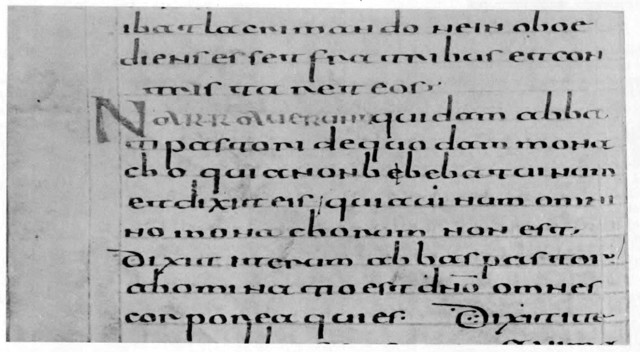 ibat lacrimando ne inoboe
diens esset fratribus et con
tristaret eos.
Narrauerunt quidam abba
ti pastori de quodam mona
cho, quia non bebebat uinum
et dixit eis, quia uinum omni
no monachorum non est.
Dixit iterum abbas pastor.
abominatio est dño omnes
corporea quies Dixit ite